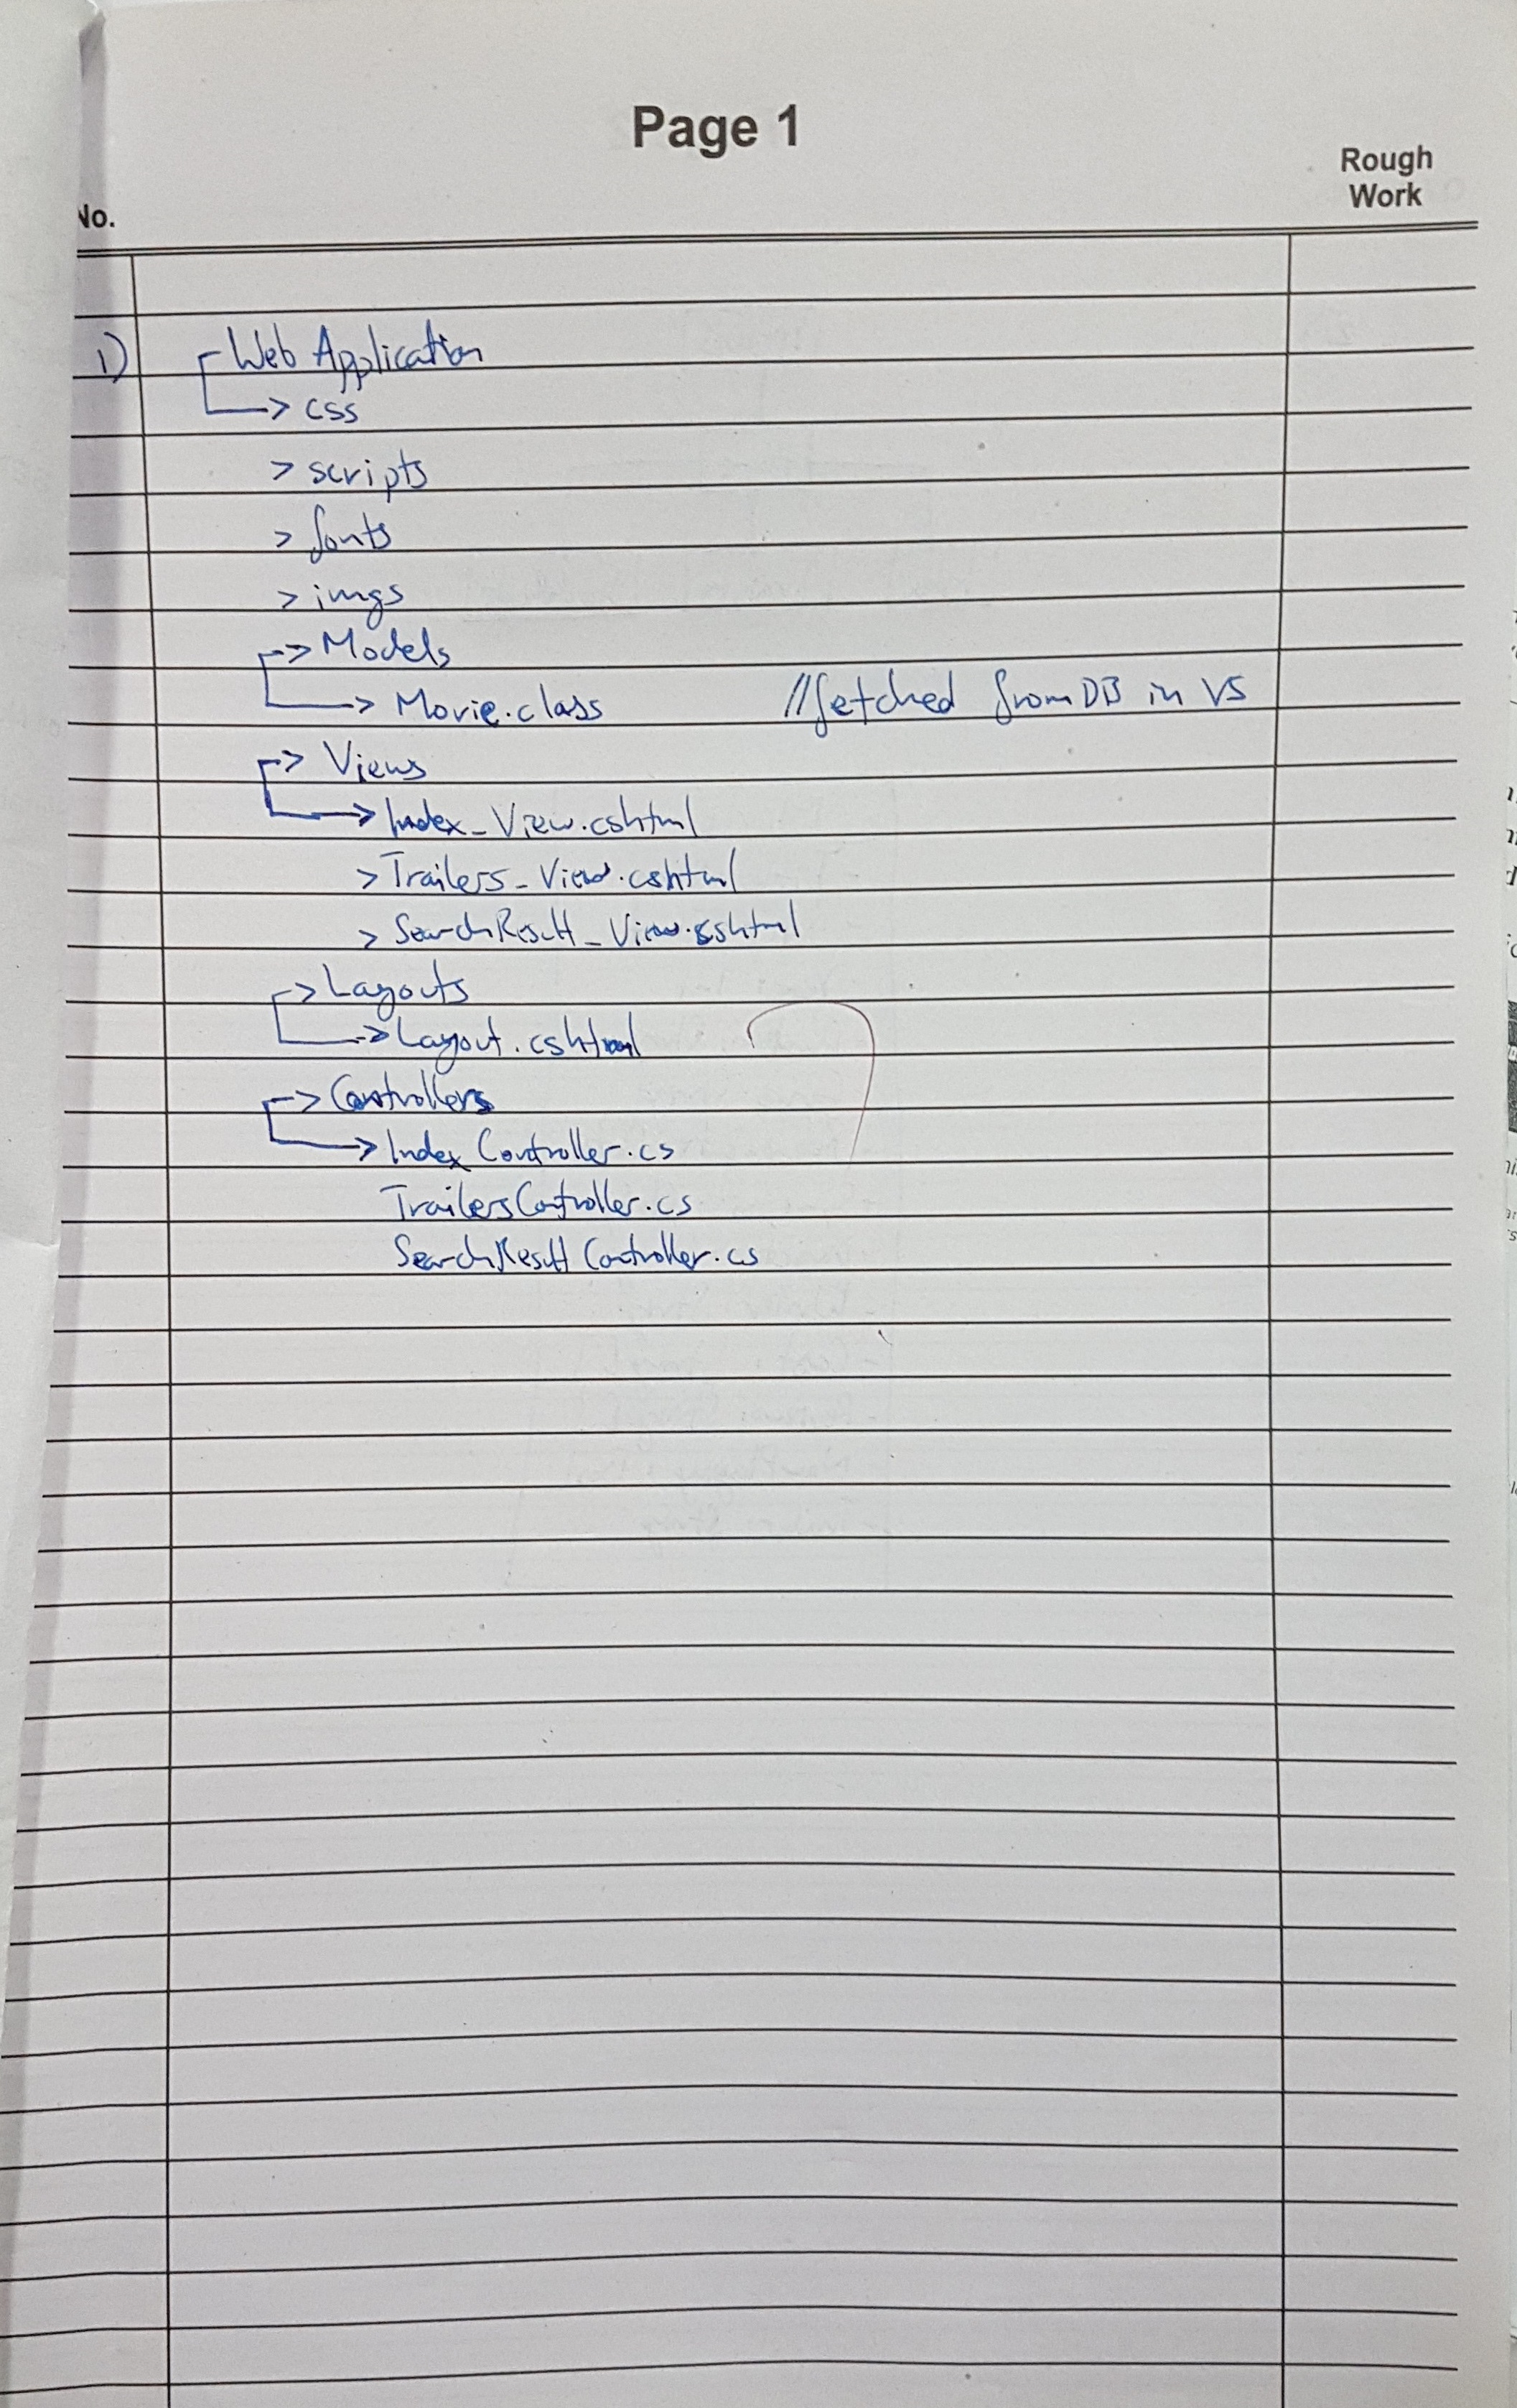 Page 1
Rough
Work
No.
1) Web Application
> css
> scripts
> fonts
> imgs
> Models
> Movie.class //fetched from DB in VS
> Views
> Index_View.cshtml
> Trailers_View.cshtml
> SearchResult_View.cshtml
> Layouts
> Layout.cshtml
> Controllers
> Index Controller.cs
TrailersController.cs
SearchResult Controller.cs